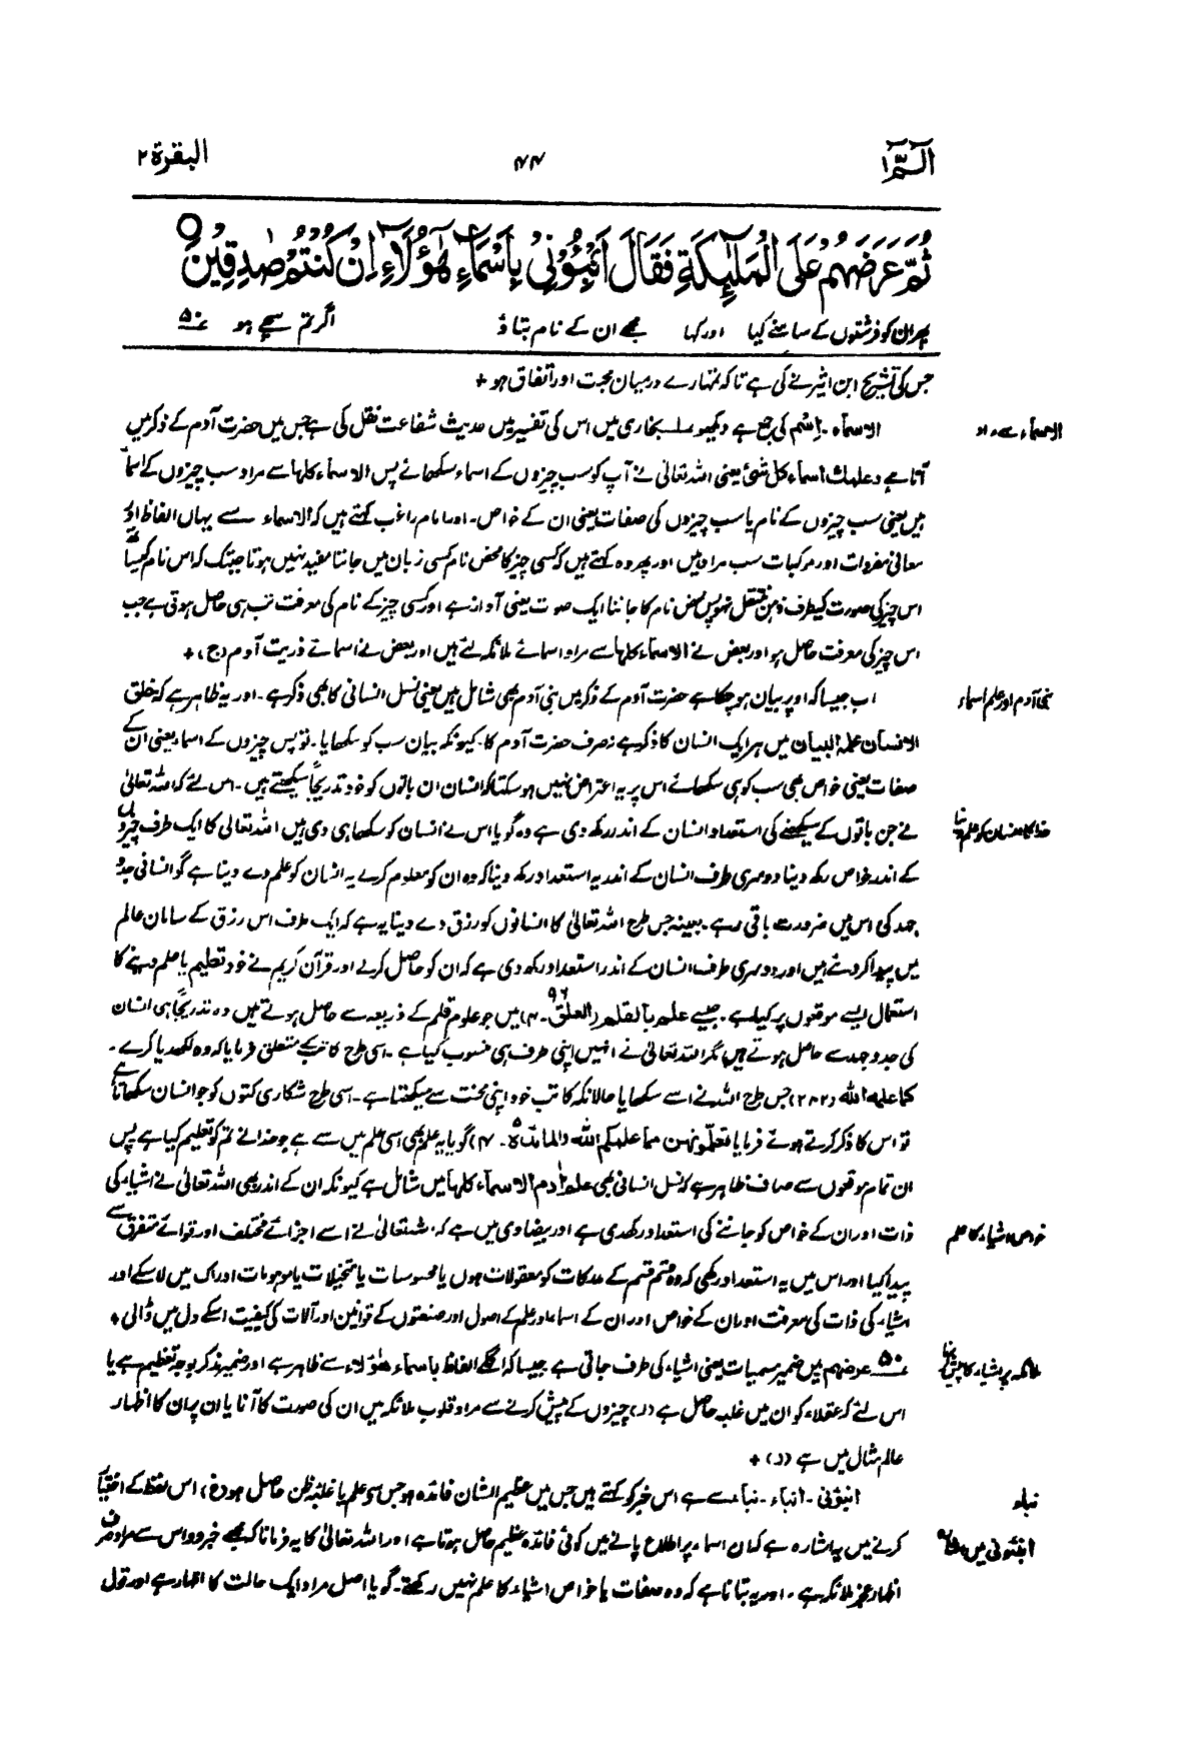 الٓمّٓ ۱
۴۴
البقرة ۲
ثُمَّ عَرَضَهُمْ عَلَى الْمَلٰٓئِكَةِ فَقَالَ اَنْۢبِـُٔوْنِيْ بِاَسْمَآءِ هٰٓؤُلَآءِ اِنْ كُنْتُمْ صٰدِقِيْنَ ○
پھر ان کو فرشتوں کے سامنے کیا اور کہا مجھے ان کے نام بتاؤ اگر تم سچے ہو ۵۰
جس کی تشریح ابن اثیر نے کی ہے تاکہ تمہارے درمیان محبت اور اتفاق ہو +
الاسماء سے مراد
الاسماء۔ اِسْم کی جمع ہے دیکھو ۱ بخاری میں اس کی تفسیر میں حدیث شفاعت نقل کی ہے جس میں حضرت آدم کے ذکر میں
آتا ہے وعلمك اسماء كل شئ یعنی اللہ تعالیٰ نے آپ کو سب چیزوں کے اسماء سکھائے پس الاسماء كلها سے مراد سب چیزوں کے اسما
ہیں یعنی سب چیزوں کے نام یا سب چیزوں کی صفات یعنی ان کے خواص۔ اور امام راغب کہتے ہیں کہ الاسماء سے یہاں الفاظ اور
معانی مفردات اور مرکبات سب مراد ہیں اور پھر وہ کہتے ہیں کہ کسی چیز کا محض نام کسی زبان میں جاننا مفید نہیں ہوتا جبتک کہ اس نام کیساتھ
اس چیز کی صورت کیطرف ذہن منتقل نہ ہو پس محض نام کا جاننا ایک صوت یعنی آواز ہے اور کسی چیز کے نام کی معرفت تب ہی حاصل ہوتی ہے جب
اس چیز کی معرفت حاصل ہو اور بعض نے الاسماء كلها سے مراد اسمائے ملائکہ لئے ہیں اور بعض نے اسمائے ذریت آدم (ج) +
بنی آدم اور علم اسماء
اب جیسا کہ اوپر بیان ہو چکا ہے حضرت آدم کے ذکر میں بنی آدم بھی شامل ہیں یعنی نسل انسانی کا بھی ذکر ہے۔ اور یہ ظاہر ہے کہ خلق
الانسان علمه البيان میں ہر ایک انسان کا ذکر ہے نہ صرف حضرت آدم کا۔ کیونکہ بیان سب کو سکھایا۔ تو پس چیزوں کے اسماء یعنی ان کے
صفات یعنی خواص بھی سب کو ہی سکھائے اس پر یہ اعتراض نہیں ہو سکتا کہ انسان ان باتوں کو خود تدریجاً سیکھتے ہیں۔ اس لئے کہ اللہ تعالیٰ
خدا کا انسان کو علم دینا
نے جن باتوں کے سیکھنے کی استعداد انسان کے اندر رکھ دی ہے وہ گویا اس نے انسان کو سکھا ہی دی ہیں اللہ تعالیٰ کا ایک طرف چیزوں
کے اندر خواص رکھ دینا دوسری طرف انسان کے اندر یہ استعداد رکھ دینا کہ وہ ان کو معلوم کرے یہ انسان کو علم دے دینا ہے گو انسانی جدو
جہد کی اس میں ضرورت باقی رہے۔ بعینہ جس طرح اللہ تعالیٰ کا انسانوں کو رزق دے دینا یہ ہے کہ ایک طرف اس رزق کے سامان عالم
میں پیدا کر دئے ہیں اور دوسری طرف انسان کے اندر استعداد رکھ دی ہے کہ ان کو حاصل کرلے اور قرآن کریم نے خود تعلیم یا علم دینے کا
استعمال ایسے موقعوں پر کیا ہے۔ جیسے علم بالقلم (العلق ۹۶۔ ۴) میں جو علوم قلم کے ذریعہ سے حاصل ہوتے ہیں وہ تدریجاً ہی انسان
کی جدوجہد سے حاصل ہوتے ہیں مگر اللہ تعالیٰ نے انہیں اپنی طرف ہی منسوب کیا ہے۔ اسی طرح کاتب کے متعلق فرمایا کہ وہ لکھدیا کرے۔
كما علمه الله (۲۸۲) جس طرح اللہ نے اسے سکھایا حالانکہ کاتب خود اپنی محنت سے سیکھتا ہے۔ اسی طرح شکاری کتوں کو جو انسان سکھاتا ہے
تو اس کا ذکر کرتے ہوئے فرمایا تعلمونهن مما علمكم الله (المائدة ۵۔ ۴) گویا یہ علم بھی اسی علم میں سے ہے جو خدا نے تم کو تعلیم کیا ہے پس
ان تمام موقعوں سے صاف ظاہر ہے کہ نسل انسانی بھی علم اٰدم الاسماء كلها میں شامل ہے کیونکہ ان کے اندر بھی اللہ تعالیٰ نے اشیاء کی
خواص اشیاء کا علم
ذات اور ان کے خواص کو جاننے کی استعداد رکھدی ہے اور بیضاوی میں ہے کہ اللہ تعالیٰ نے اسے اجزائے مختلف اور قوائے متفرق سے
پیدا کیا اور اس میں یہ استعداد رکھی کہ وہ قسم قسم کے مدرکات کو معقولات ہوں یا محسوسات یا متخیلات یا موہومات ادراک میں لا سکے اور
اشیاء کی ذات کی معرفت اور ان کے خواص اور ان کے اسما اور علم کے اصول اور صنعتوں کے قوانین اور آلات کی کیفیت اسکے دل میں ڈالی +
ملائکہ پر اشیاء کا پیش ہونا
۵۰ عرضهم میں ضمیر مسمیات یعنی اشیاء کی طرف جاتی ہے جیسا کہ اگلے الفاظ باسماء هؤلاء سے ظاہر ہے اور ضمیر مذکر بوجہ تعظیم ہے یا
اس لئے کہ عقلاء کو ان میں غلبہ حاصل ہے (ر) چیزوں کے پیش کرنے سے مراد قلوب ملائکہ میں ان کی صورت کا آنا یا ان پر ان کا اظہار
عالم مثال میں ہے (ر) +
نبأ
انبؤنی۔ انباء۔ نبأ سے ہے اس خبر کو کہتے ہیں جس میں عظیم الشان فائدہ ہو جس سے علم یا غلبہ ظن حاصل ہو (غ) اس لفظ کے اختیار
انبئونی میں اشارہ
کرنے میں یہ اشارہ ہے کہ ان اسماء پر اطلاع پانے میں کوئی فائدہ عظیم حاصل ہوتا ہے اور اللہ تعالیٰ کا یہ فرمانا کہ مجھے خبر دو اس سے مراد صرف
اظہار عجز ملائکہ ہے۔ اور یہ بتانا ہے کہ وہ صفات یا خواص اشیاء کا علم نہیں رکھتے۔ گویا اصل مراد ایک حالت کا اظہار ہے اور قول